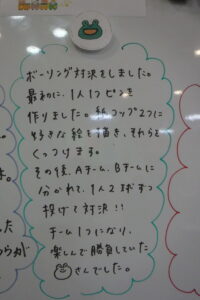 ボーリング対決をしました。
最初に、1人1つピンを
作りました。紙コップ2つに
好きな絵を描き、それらを
くっつけます。
その後、Aチーム、Bチームに
分かれて、1人2球ずつ
投げて対決!!
チーム1つになり、
楽しんで勝負していた
さんでした。